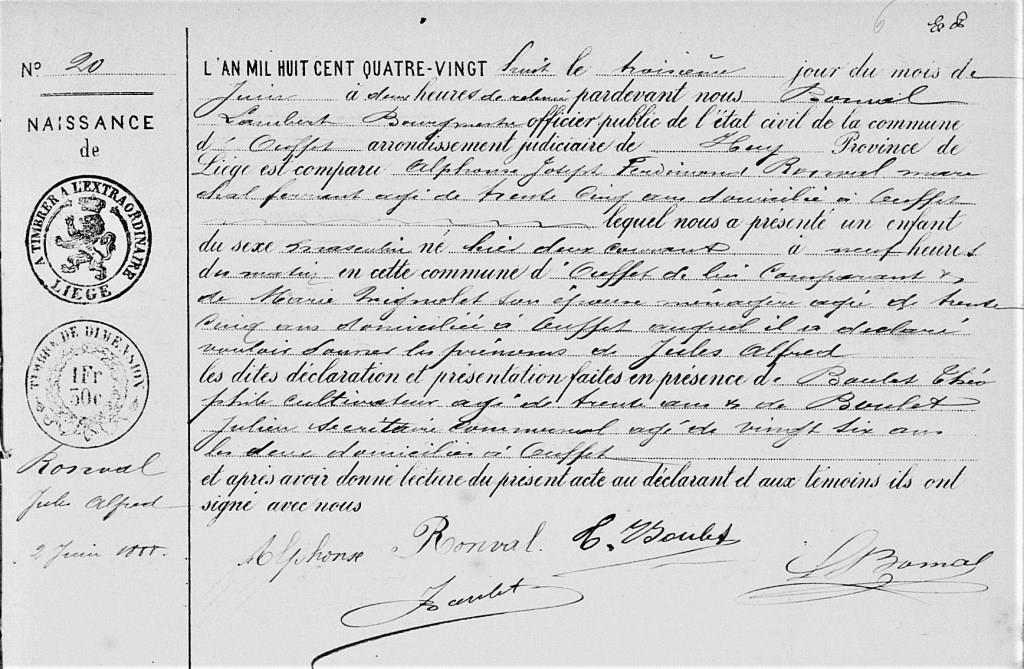 Nº 20
NAISSANCE
de
A TIMBRER A L'EXTRAORDINAIRE
LIEGE
TIMBRE DE DIMENSION
1Fr
50c
Ronval
Jules Alfred
2 Juin 1888.
L'AN MIL HUIT CENT QUATRE-VINGT huit le troisième jour du mois de
Juin à deux heures de relevée pardevant nous Bomal
Lambert Bourgmestre officier public de l'état civil de la commune
d' Ouffet arrondissement judiciaire de Huy Province de
Liège est comparu Alphonse Joseph Ferdinand Ronval mare
chal ferrant agé de trente cinq ans domicilié à Ouffet
lequel nous a présenté un enfant
du sexe masculin né hier deux courant à neuf heures
du matin en cette commune d' Ouffet de lui Comparant &
de Marie Mignolet son épouse ménagère agée de trente
cinq ans domiciliée à Ouffet auquel il a déclaré
vouloir donner les prénoms de Jules Alfred
les dites déclaration et présentation faites en présence de Boulet Théo
phile cultivateur agé de trente ans & de Boulet
Julien secrétaire communal agé de vingt six ans
les deux domiciliés à Ouffet
et après avoir donné lecture du présent acte au déclarant et aux témoins ils ont
signé avec nous
Alphonse Ronval. T. Boulet
L Bomal
J Boulet